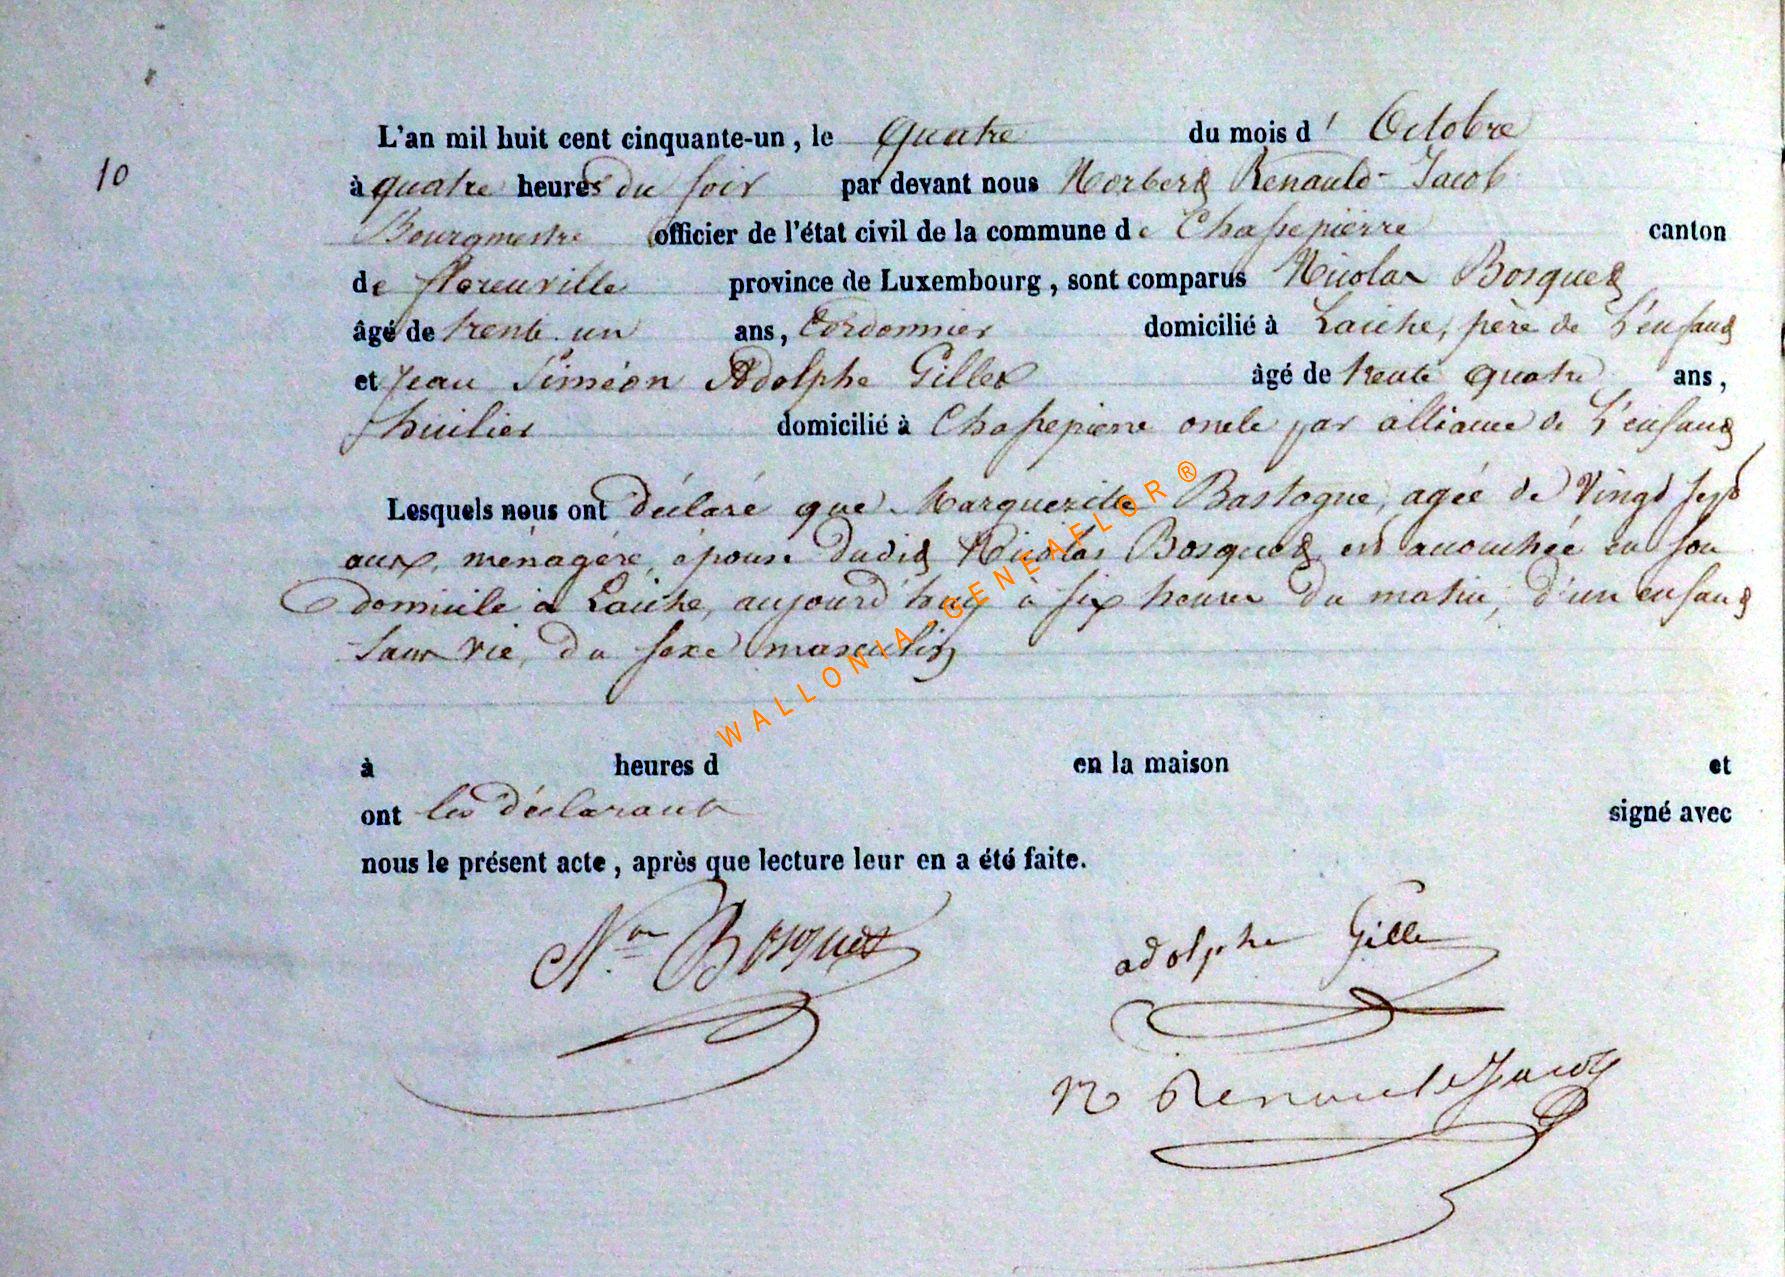 L'an mil huit cent cinquante-un, le quatre du mois d' Octobre
10
à quatre heures du soir par devant nous Norbert Renauld-Jacob
Bourgmestre officier de l'état civil de la commune de Chassepierre canton
de florenville province de Luxembourg, sont comparus Nicolas Bosquet
âgé de trente un ans, Cordonnier domicilié à Laiche, père de L'enfant
et Jean Siméon Adolphe Gilles âgé de trente quatre ans,
huilier domicilié à Chassepierre oncle par alliance de L'enfant
Lesquels nous ont déclaré que Marguerite Bastogne, agée de Vingt sept
ans, ménagère, épouse dudit Nicolas Bosquet est accouchée en son
domicile à Laiche, aujourd'huy à six heures du matin, d'un enfant
sans vie, du sexe masculin
à heures d en la maison et
ont les déclarants signé avec
nous le présent acte, après que lecture leur en a été faite.
Nas Bosquet
adolphe Gille
N Renauld Jacob
WALLONIA-GENEAFLOR®